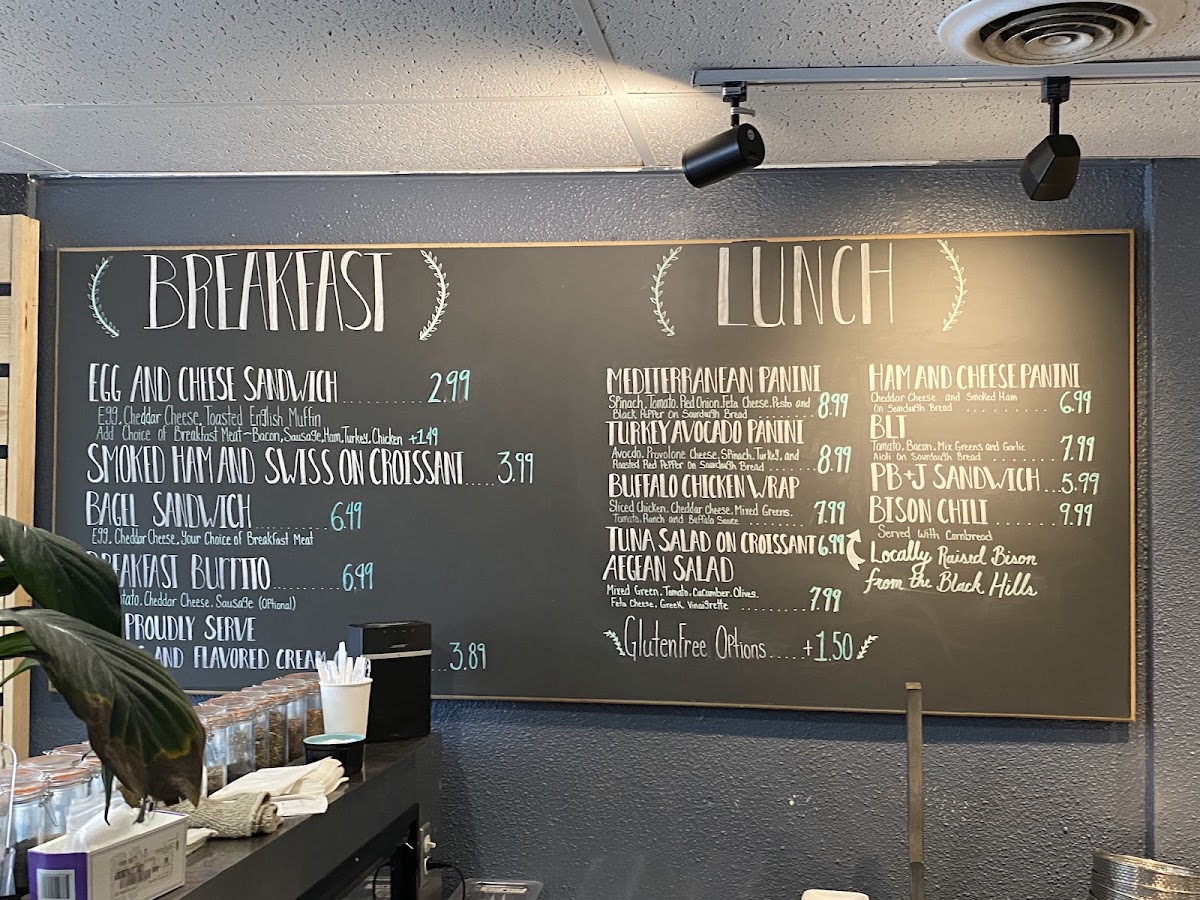 BREAKFAST
EGG AND CHEESE SANDWICH..........2.99
Egg, Cheddar Cheese, Toasted English Muffin
Add Choice of Breakfast Meat-Bacon, Sausage, Ham, Turkey, Chicken +1.49
SMOKED HAM AND SWISS ON CROISSANT.....3.99
BAGEL SANDWICH..........6.49
Egg, Cheddar Cheese, Your Choice of Breakfast Meat
BREAKFAST BURRITO..........6.49
Cheddar Cheese, Sausage (Optional)
PROUDLY SERVE
AND FLAVORED CREAM ...3.89
LUNCH
MEDITERRANEAN PANINI
Spinach, Tomato, Red Onion, Feta Cheese, Pesto and
Black Pepper on Sourdough Bread..........8.99
TURKEY AVOCADO PANINI
Avocado, Provolone Cheese, Spinach, Turkey, and
Roasted Red Pepper on Sourdough Bread..........8.99
BUFFALO CHICKEN WRAP
Sliced Chicken, Cheddar Cheese, Mixed Greens,
Tomato, Ranch and Buffalo Sauce..........7.99
TUNA SALAD ON CROISSANT 6.99
AEGEAN SALAD
Mixed Green, Tomato, Cucumber, Olives,
Feta Cheese, Greek Vinaigrette..........7.99
Gluten Free Options.....+1.50
HAM AND CHEESE PANINI
Cheddar Cheese and Smoked Ham
on Sourdough Bread..........6.99
BLT
Tomato, Bacon, Mix Greens and Garlic
Aioli on Sourdough Bread..........7.99
PB+J SANDWICH...5.99
BISON CHILI..........9.99
Served with Cornbread
Locally Raised Bison
from the Black Hills